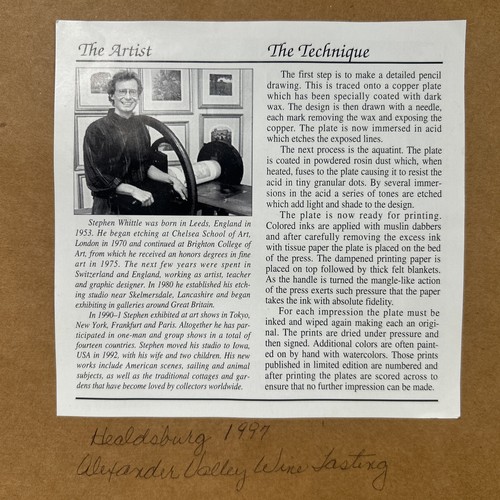 The Artist
Stephen Whittle was born in Leeds, England in
1953. He began etching at Chelsea School of Art,
London in 1970 and continued at Brighton College of
Art, from which he received an honors degrees in fine
art in 1975. The next few years were spent in
Switzerland and England, working as artist, teacher
and graphic designer. In 1980 he established his etch-
ing studio near Skelmersdale, Lancashire and began
exhibiting in galleries around Great Britain.
In 1990–1 Stephen exhibited at art shows in Tokyo,
New York, Frankfurt and Paris. Altogether he has par-
ticipated in one-man and group shows in a total of
fourteen countries. Stephen moved his studio to Iowa,
USA in 1992, with his wife and two children. His new
works include American scenes, sailing and animal
subjects, as well as the traditional cottages and gar-
dens that have become loved by collectors worldwide.
The Technique
The first step is to make a detailed pencil
drawing. This is traced onto a copper plate
which has been specially coated with dark
wax. The design is then drawn with a needle,
each mark removing the wax and exposing the
copper. The plate is now immersed in acid
which etches the exposed lines.
The next process is the aquatint. The plate
is coated in powdered rosin dust which, when
heated, fuses to the plate causing it to resist the
acid in tiny granular dots. By several immer-
sions in the acid a series of tones are etched
which add light and shade to the design.
The plate is now ready for printing.
Colored inks are applied with muslin dabbers
and after carefully removing the excess ink
with tissue paper the plate is placed on the bed
of the press. The dampened printing paper is
placed on top followed by thick felt blankets.
As the handle is turned the mangle-like action
of the press exerts such pressure that the paper
takes the ink with absolute fidelity.
For each impression the plate must be
inked and wiped again making each an origi-
nal. The prints are dried under pressure and
then signed. Additional colors are often paint-
ed on by hand with watercolors. Those prints
published in limited edition are numbered and
after printing the plates are scored across to
ensure that no further impression can be made.
Healdsburg 1997
Alexander Valley Wine Tasting